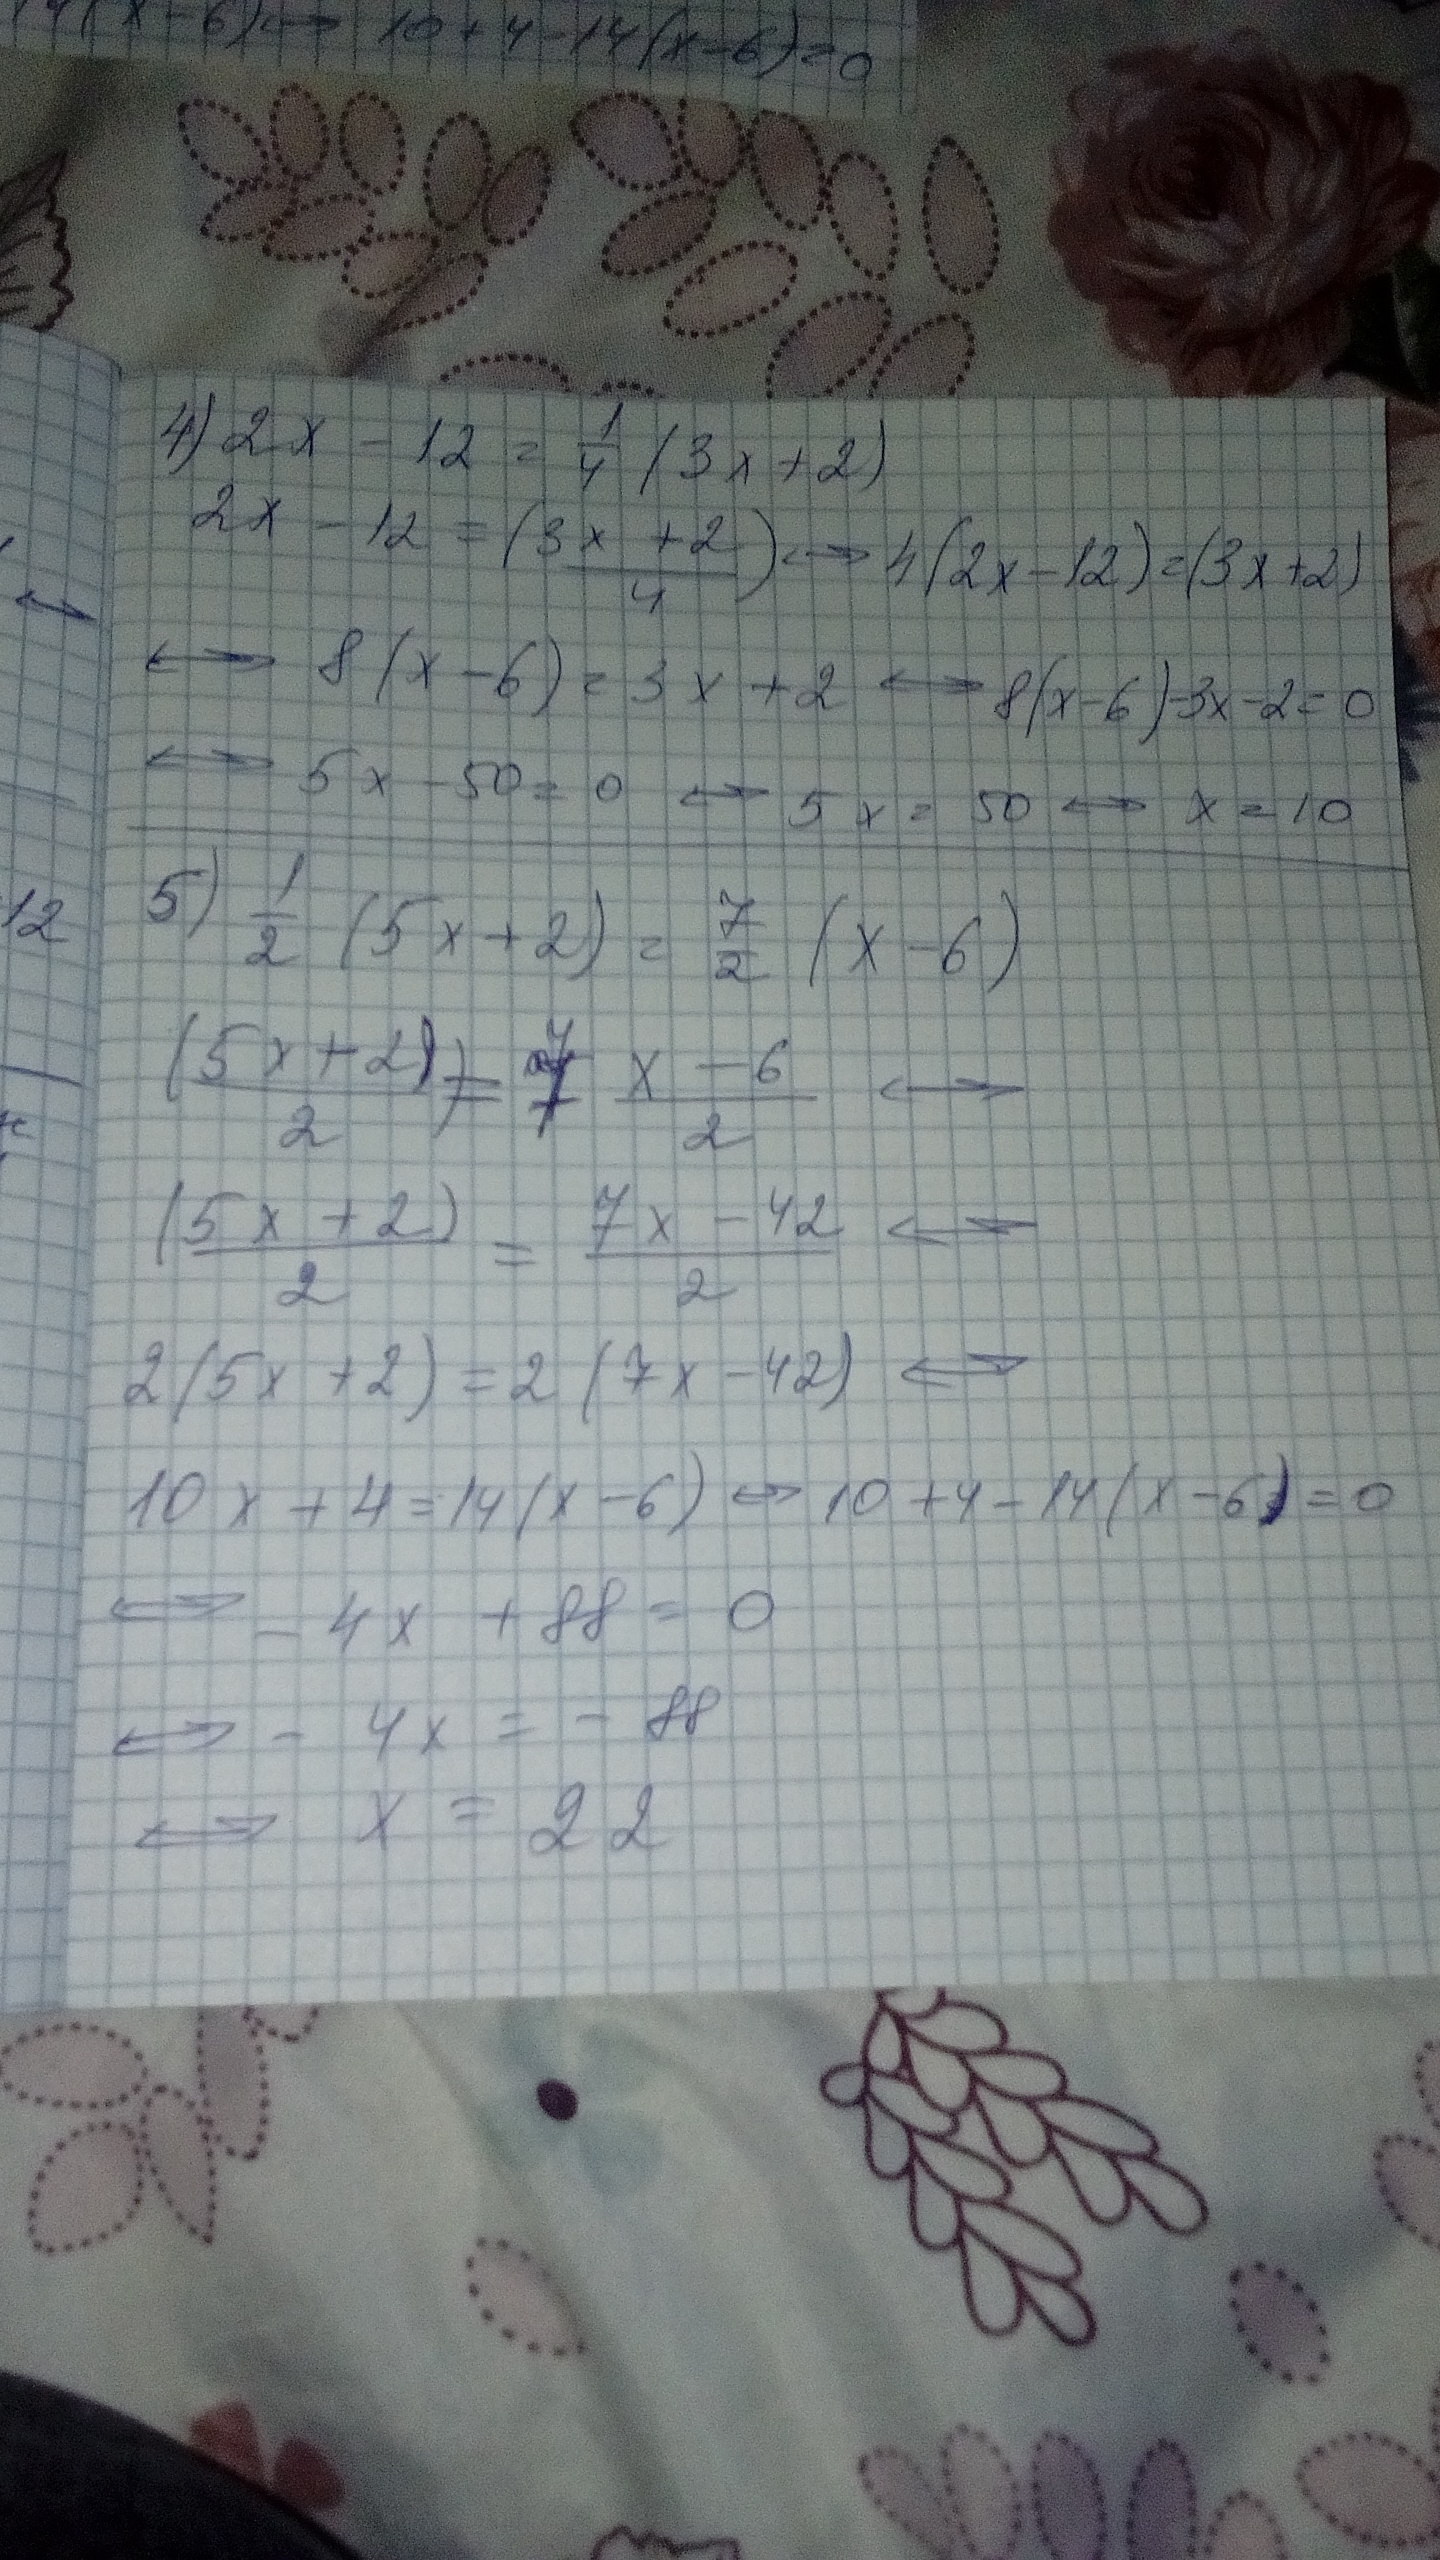 14(x-6) ↔ 10+4-14(x-6)=0
4) 2x - 12 = 1/4 (3x+2)
2x - 12 = (3x+2/4) ↔ 4(2x-12)=(3x+2)
↔
↔ 8(x-6)=3x+2 ↔ 8(x-6)-3x-2=0
↔ 5x-50=0 ↔ 5x=50 ↔ x=10
12
5) 1/2 (5x+2) = 7/2 (x-6)
(5x+2)/2) = 7 x-6/2 ↔
(5x+2)/2 = 7x-42/2 ↔
2(5x+2)=2(7x-42) ↔
10x+4=14(x-6) ↔ 10+4-14(x-6)=0
↔ -4x+88=0
↔ -4x=-88
↔ x=22